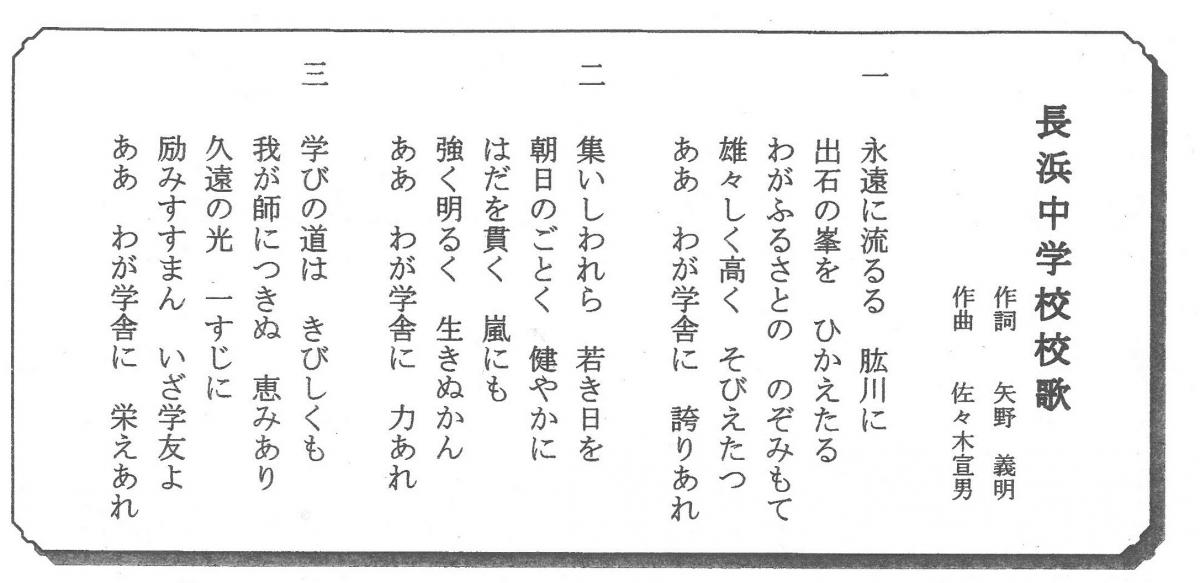 長浜中学校校歌
作詞　矢野　義明
作曲　佐々木宣男
一　永遠に流るる　肱川に
出石の峯を　ひかえたる
わがふるさとの　のぞみもて
雄々しく高く　そびえたつ
ああ　わが学舎に　誇りあれ
二　集いしわれら　若き日を
朝日のごとく　健やかに
はだを貫く　嵐にも
強く明るく　生きぬかん
ああ　わが学舎に　力あれ
三　学びの道は　きびしくも
我が師につきぬ　恵みあり
久遠の光　一すじに
励みすすまん　いざ学友よ
ああ　わが学舎に　栄えあれ